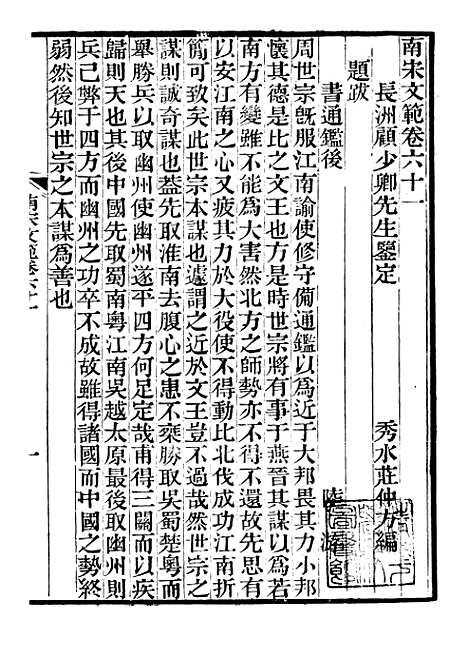 南宋文範卷六十一
長洲顧少卿先生鑒定 秀水莊仲方編
題䟦
書通鑑後 陸游
周世宗旣服江南諭使修守備通鑑以爲近于大邦畏其力小邦
懷其德是比之文王也方是時世宗將有事于燕晉其謀以爲若
南方有變雖不能爲大害然北方之師勢亦不得不還故先思有
以安江南之心又疲其力於大役使不得動此北伐成功江南折
簡可致矣此世宗本謀也遽謂之近於文王豈不過哉世宗之
謀則誠奇謀也葢先取淮南去腹心之患不乘勝取吳蜀楚粤而
舉勝兵以取幽州使幽州遂平四方何足定哉甫得三關而以疾
歸則天也其後中國先取蜀南粤江南吳越太原最後取幽州則
兵已弊于四方而幽州之功卒不成故雖得諸國而中國之勢終
弱然後知世宗之本謀爲善也
南宋文範卷六十一
一